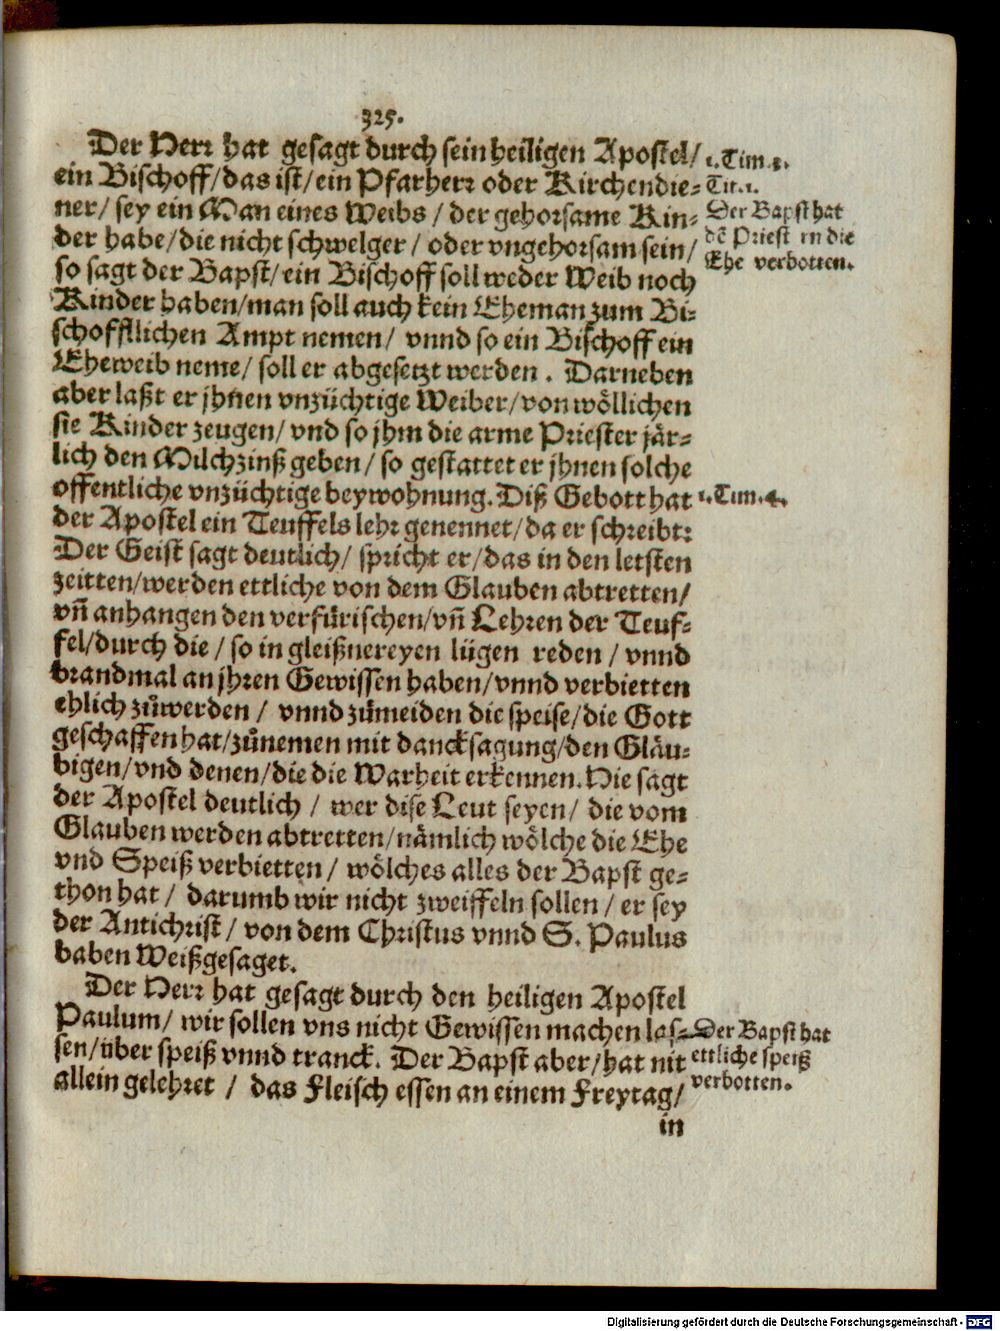 325.
Der Herr hat gesagt durch sein heiligen Apostel/
ein Bischoff/das ist/ein Pfarherr oder Kirchendie-
ner/ sey ein Man eines Weibs / der gehorsame Kin-
der habe/die nicht schwelger / oder vngehorsam sein/
so sagt der Bapst/ein Bischoff soll weder Weib noch
Kinder haben/man soll auch kein Eheman zum Bi-
schofflichen Ampt nemen/ vnnd so ein Bischoff ein
Eheweib neme/ soll er abgesetzt werden . Darneben
aber laßt er jhnen vnzüchtige Weiber/von wöllichen
sie Kinder zeugen/ vnd so jhm die arme Priester jär-
lich den Milchzinß geben / so gestattet er jhnen solche
offentliche vnzüchtige beywohnung. Diß Gebott hat
der Apostel ein Teuffels lehr genennet/da er schreibt:
Der Geist sagt deutlich/ spricht er/das in den letsten
zeitten/werden ettliche von dem Glauben abtretten/
vñ anhangen den verfürischen/vñ Lehren der Teuf-
fel/durch die / so in gleißnereyen lügen reden / vnnd
brandmal an jhren Gewissen haben/vnnd verbietten
ehlich zůwerden / vnnd zůmeiden die speise/die Gott
geschaffen hat/zůnemen mit dancksagung/den Gläu-
bigen/vnd denen/die die Warheit erkennen. Hie sagt
der Apostel deutlich / wer dise Leut seyen/ die vom
Glauben werden abtretten/nämlich wölche die Ehe
vnd Speiß verbietten / wölches alles der Bapst ge-
thon hat / darumb wir nicht zweiffeln sollen / er sey
der Antichrist / von dem Christus vnnd S. Paulus
haben Weißgesaget.
Der Herr hat gesagt durch den heiligen Apostel
Paulum/ wir sollen vns nicht Gewissen machen las-
sen/über speiß vnnd tranck. Der Bapst aber/hat nit
allein gelehret / das Fleisch essen an einem Freytag/
in
1. Tim. 3.
Tit. 1.
Der Bapst hat
dē Priest in die
Ehe verbotten.
1. Tim. 4.
Der Bapst hat
ettliche speiß
verbotten.
Digitalisierung gefördert durch die Deutsche Forschungsgemeinschaft - DFG